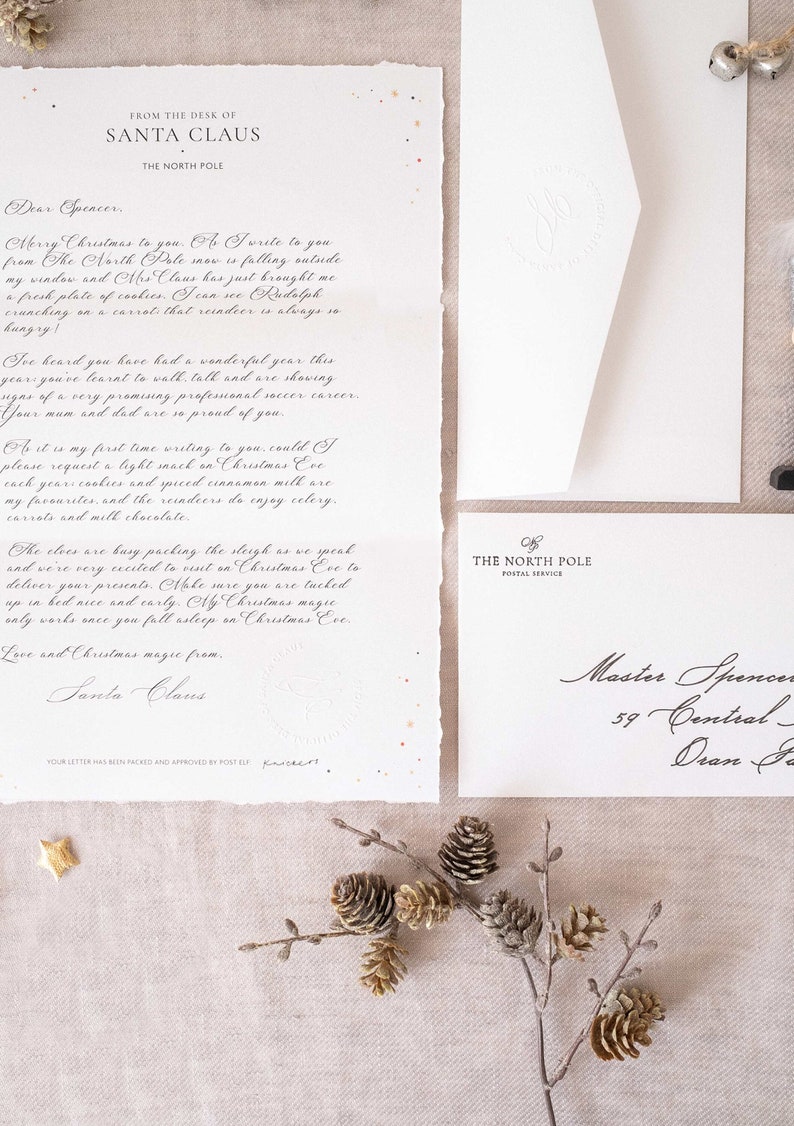 FROM THE DESK OF
SANTA CLAUS
THE NORTH POLE
Dear Spencer,
Merry Christmas to you. As I write to you
from The North Pole snow is falling outside
my window and Mrs Claus has just brought me
a fresh plate of cookies. I can see Rudolph
crunching on a carrot; that reindeer is always so
hungry!
I've heard you have had a wonderful year this
year; you've learnt to walk, talk and are showing
signs of a very promising professional soccer career.
Your mum and dad are so proud of you.
As it is my first time writing to you, could I
please request a light snack on Christmas Eve
each year; cookies and spiced cinnamon milk are
my favourites, and the reindeers do enjoy celery,
carrots and milk chocolate.
The elves are busy packing the sleigh as we speak
and we're very excited to visit on Christmas Eve to
deliver your presents. Make sure you are tucked
up in bed nice and early. My Christmas magic
only works once you fall asleep on Christmas Eve.
Love and Christmas magic from,
Santa Claus
YOUR LETTER HAS BEEN PACKED AND APPROVED BY POST ELF: Knickers
THE NORTH POLE
POSTAL SERVICE
Master Spencer
59 Central
Oran